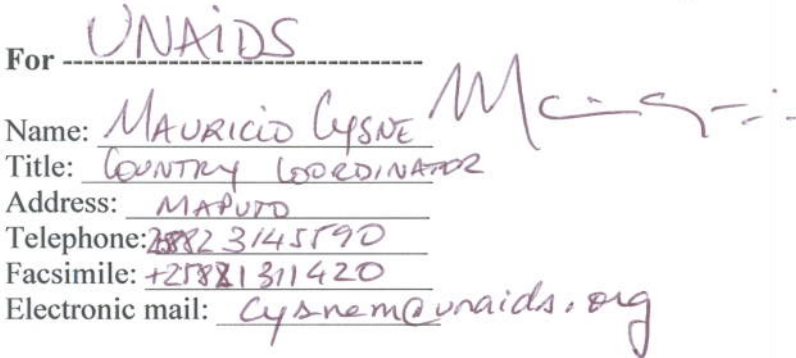 For UNAIDS
Name: MAURICIO CYSNE
Title: COUNTRY COORDINATOR
Address: MAPUTO
Telephone: 258823145590
Facsimile: +25821311420
Electronic mail: cysnem@unaids.org